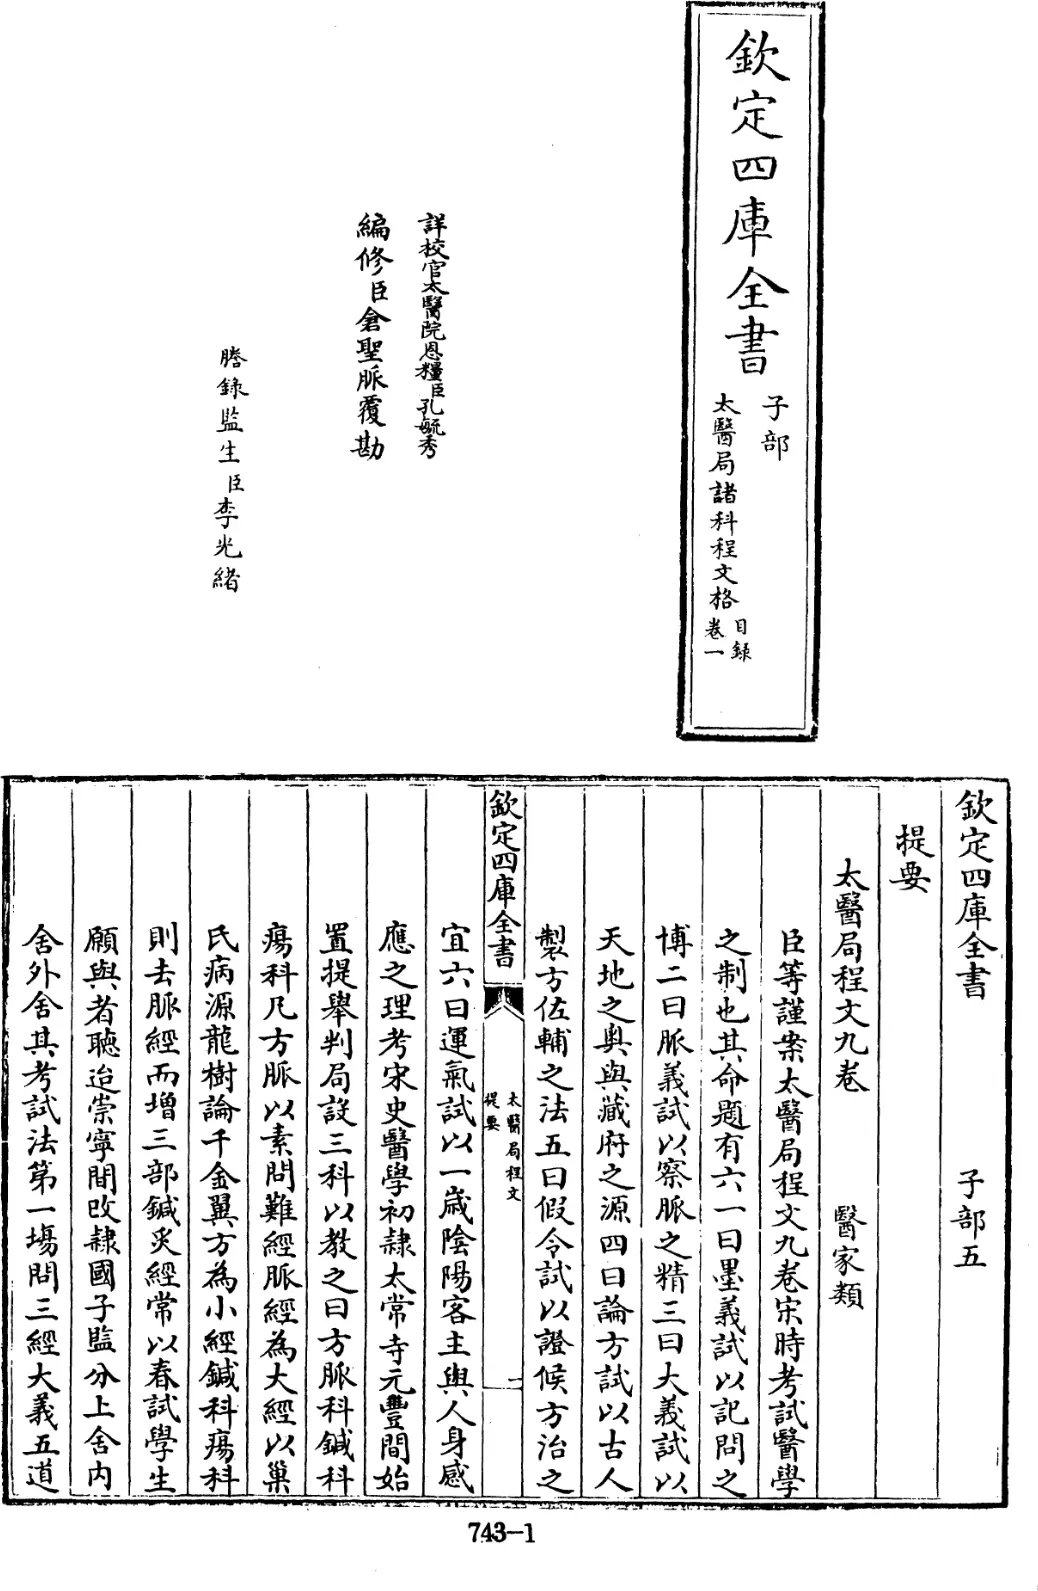 欽定四庫全書
子部
太醫局諸科程文格
目錄
卷一
詳校官太醫院恩糧臣孔毓秀
編修臣倉聖脈覆勘
謄錄監生臣李光緒
欽定四庫全書　子部五
提要
太醫局程文九卷　醫家類
臣等謹案太醫局程文九卷宋時考試醫學
之制也其命題有六一曰墨義試以記問之
博二曰脈義試以察脈之精三曰大義試以
天地之奧與臟府之源四曰論方試以古人
製方佐輔之法五曰假令試以證候方治之
欽定四庫全書
太醫局程文
提要
一
宜六曰運氣試以一歲陰陽客主與人身感
應之理考宋史醫學初隸太常寺元豐間始
置提舉判局設三科以教之曰方脈科鍼科
瘍科凡方脈以素問難經脈經為大經以巢
氏病源龍樹論千金翼方為小經鍼科瘍科
則去脈經而增三部鍼灸經常以春試學生
願與者聽迨崇寧間改隸國子監分上舍內
舍外舍其考試法第一場問三經大義五道
743-1